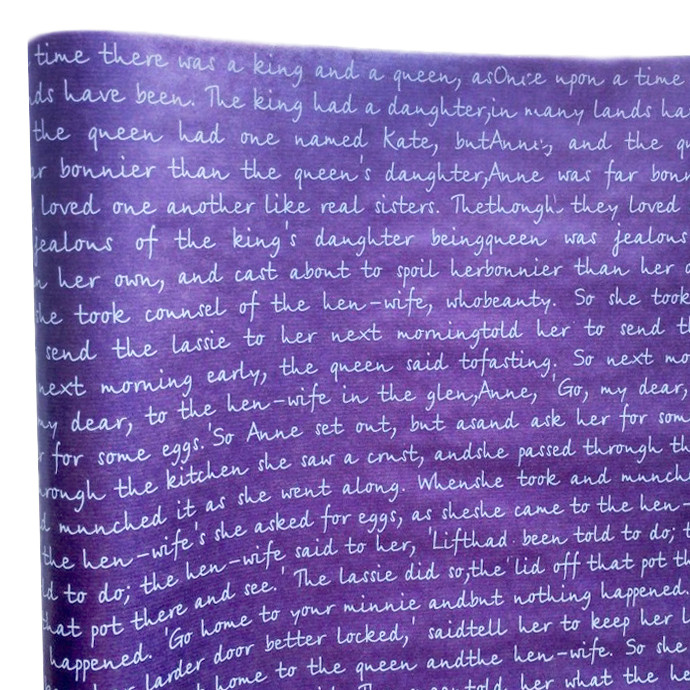 time there was a king and a queen, asOnce upon a time
have been. The king had a daughter,in many lands
the queen had one named Kate, butAnne, and the
bonnier than the queen's daughter,Anne was far
loved one another like real sisters. Thethough they loved
jealous of the king's daughter beingqueen was jealous
her own, and cast about to spoil herbonnier than her
took counsel of the hen-wife, whobeauty. So she took
send the lassie to her next morningtold her to send
next morning early, the queen said tofasting. So next
my dear, to the hen-wife in the glen,Anne, 'Go, my dear,
for some eggs.'So Anne set out, but asand ask her for
the kitchen she saw a crust, andshe passed through
munched it as she went along. Whenshe took and
the hen-wife's she asked for eggs, as sheshe came to the hen-
to do; the hen-wife said to her, 'Lifthad been told to do;
that pot there and see.' The lassie did so,the lid off that pot
happened. 'Go home to your minnie andbut nothing happened.
larder door better locked,' saidtell her to keep her
home to the queen andthe hen-wife. So she
told her what the